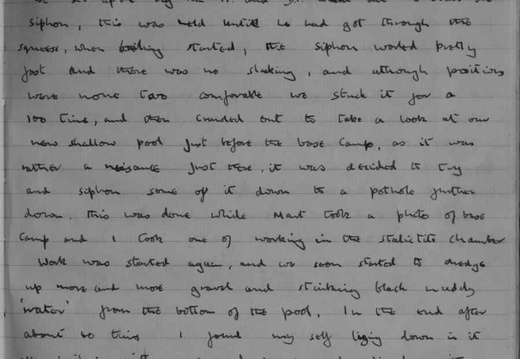 siphon, this was held until he had got through the
squeeze, when bailing started, the siphon worked pretty
fast and there was no slacking, and although positions
were none too comfortable we stuck it for a
100 tins, and then crawled out to take a look at our
new shallow pool just before the base camp, as it was
rather a nuisance just there, it was decided to try
and siphon some of it down to a pothole further
down. This was done while Mart took a photo of base
camp and I took one of working in the stalactite chamber
Work was started again, and we soon started to dredge
up more and more gravel and stinking black muddy
'water' from the bottom of the pool. In the end after
about 80 tins I found my self lying down in it